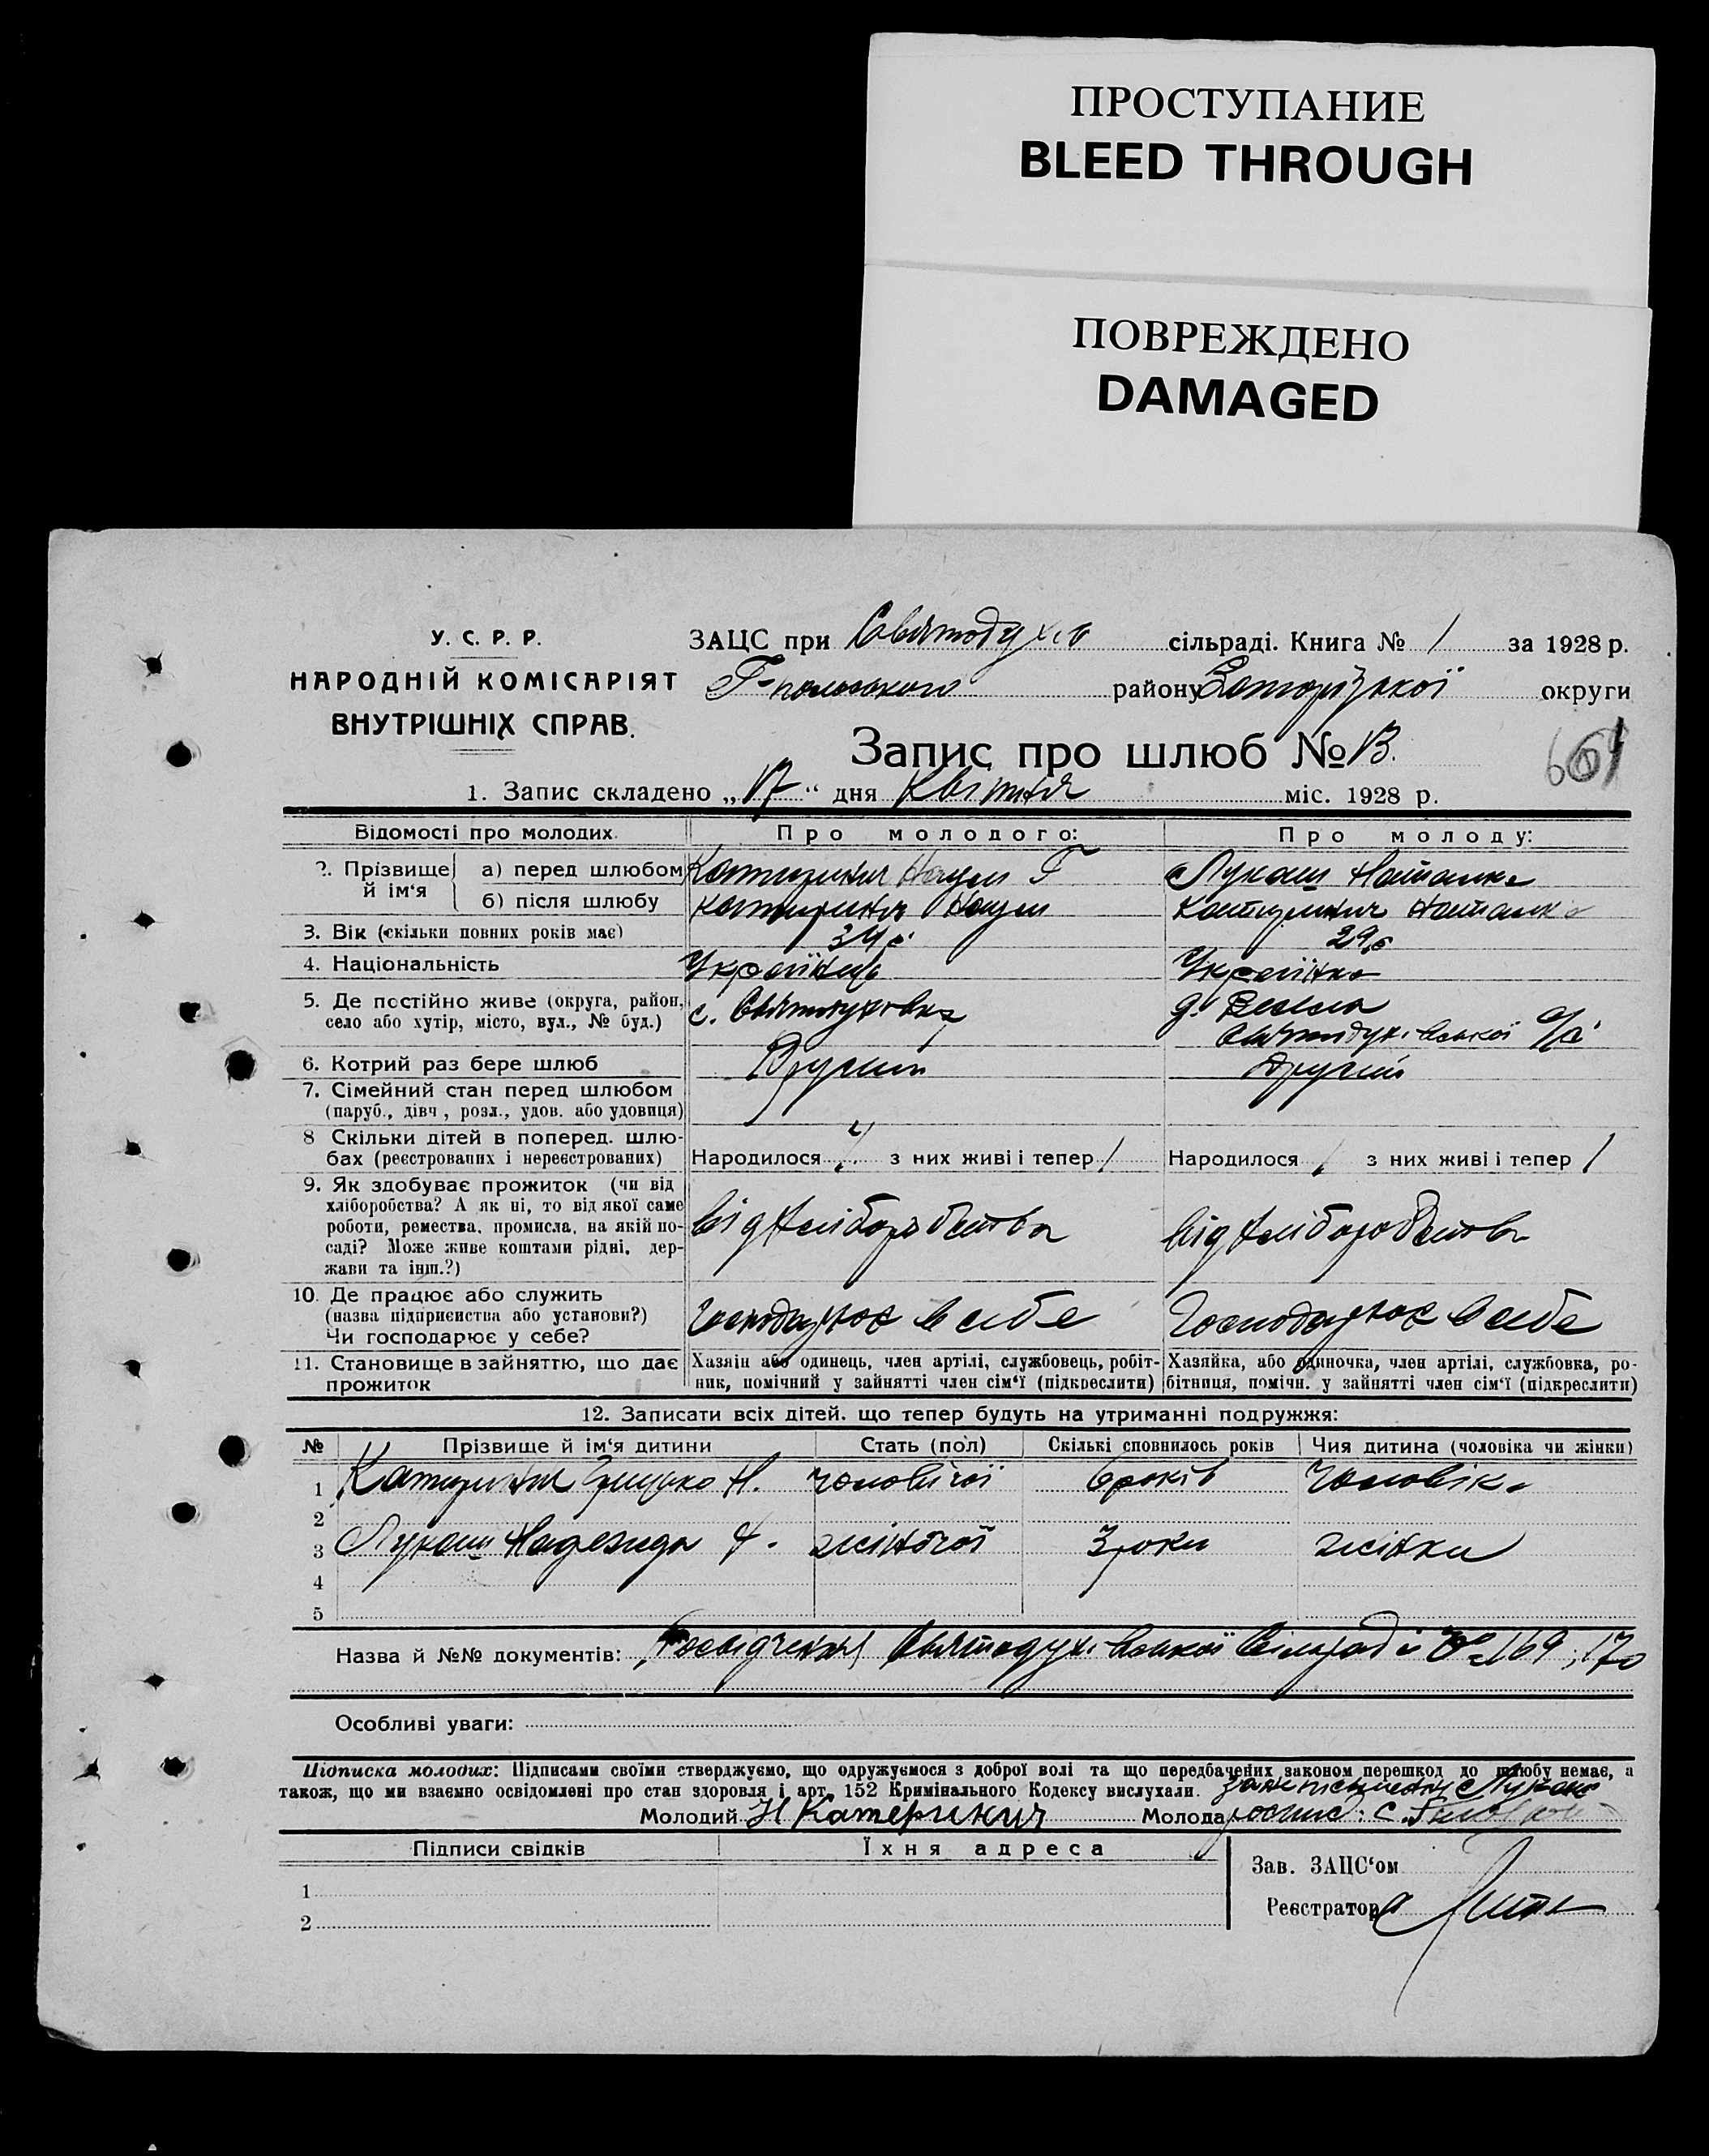 ПРОСТУПАНИЕ
BLEED THROUGH
ПОВРЕЖДЕНО
DAMAGED
У. С. Р. Р.
НАРОДНІЙ КОМІСАРІЯТ
ВНУТРІШНІХ СПРАВ.
ЗАЦС при Святодухів сільраді. Книга № 1 за 1928 р.
Г-польського району Запорізької округи
Запис про шлюб №
1. Запис складено „17“ дня Квітня міс. 1928 р.
Відомості про молодих. Про молодого: Про молоду:
2. Прізвище й ім‘я а) перед шлюбом Катеринич Наум Г Лукаш Наталка
б) після шлюбу Катеринич Наум Катеринич Наталка
3. Вік (скільки повних років має) 34 р. 29 р
4. Національність Українець Українка
5. Де постійно живе (округа, район, село або хутір, місто, вул., № буд.) с. Святодухівка д. Весела Святодухівської с/р
6. Котрий раз бере шлюб Другий Другий
7. Сімейний стан перед шлюбом
(паруб., дівч, розл., удов. або удовиця)
8 Скільки дітей в поперед. шлю-
бах (реєстрованих і нереєстрованих) Народилося з них живі і тепер 1 Народилося 1 з них живі і тепер 1
9. Як здобуває прожиток (чи від
хліборобства? А як ні, то від якої саме
роботи, ремества, промисла, на якій по-
саді? Може живе коштами рідні, дер-
жави та інш.?) від хліборобства від хліборобства
10. Де працює або служить
(назва підприємства або установи?)
Чи господарює у себе? Господарює в себе Господарює в себе
11. Становище в зайняттю, що дає
прожиток
Хазяїн або одинець, член артілі, службовець, робіт-
ник, помічний у зайнятті член сім‘ї (підкреслити)
Хазяйка, або одиночка, член артілі, службовка, ро-
бітниця, помічн. у зайнятті член сім‘ї (підкреслити)
12. Записати всіх дітей. що тепер будуть на утриманні подружжя:
№ Прізвище й ім‘я дитини Стать (пол) Скількі сповнилось років Чия дитина (чоловіка чи жінки)
1 Катеринич Грицько Н. чоловічої 6 років чоловіка
2
3 Лукаш Надежда жіночої 3 роки жінки
4
5
Назва й №№ документів: Посвідчення Святодухівської Сільради № 169, 170
Особливі уваги:
Підписка молодих: Підписами своїми стверджуємо, що одружуємося з доброї волі та що передбачених законом перешкод до шлюбу немає, а
також, що ми взаємно освідомлені про стан здоровля і арт. 152 Кримінального Кодексу вислухали.
Молодий Н Катеринич Молода
Підписи свідків Їхня адреса
1
2
Зав. ЗАЦС‘ом
Реєстратор